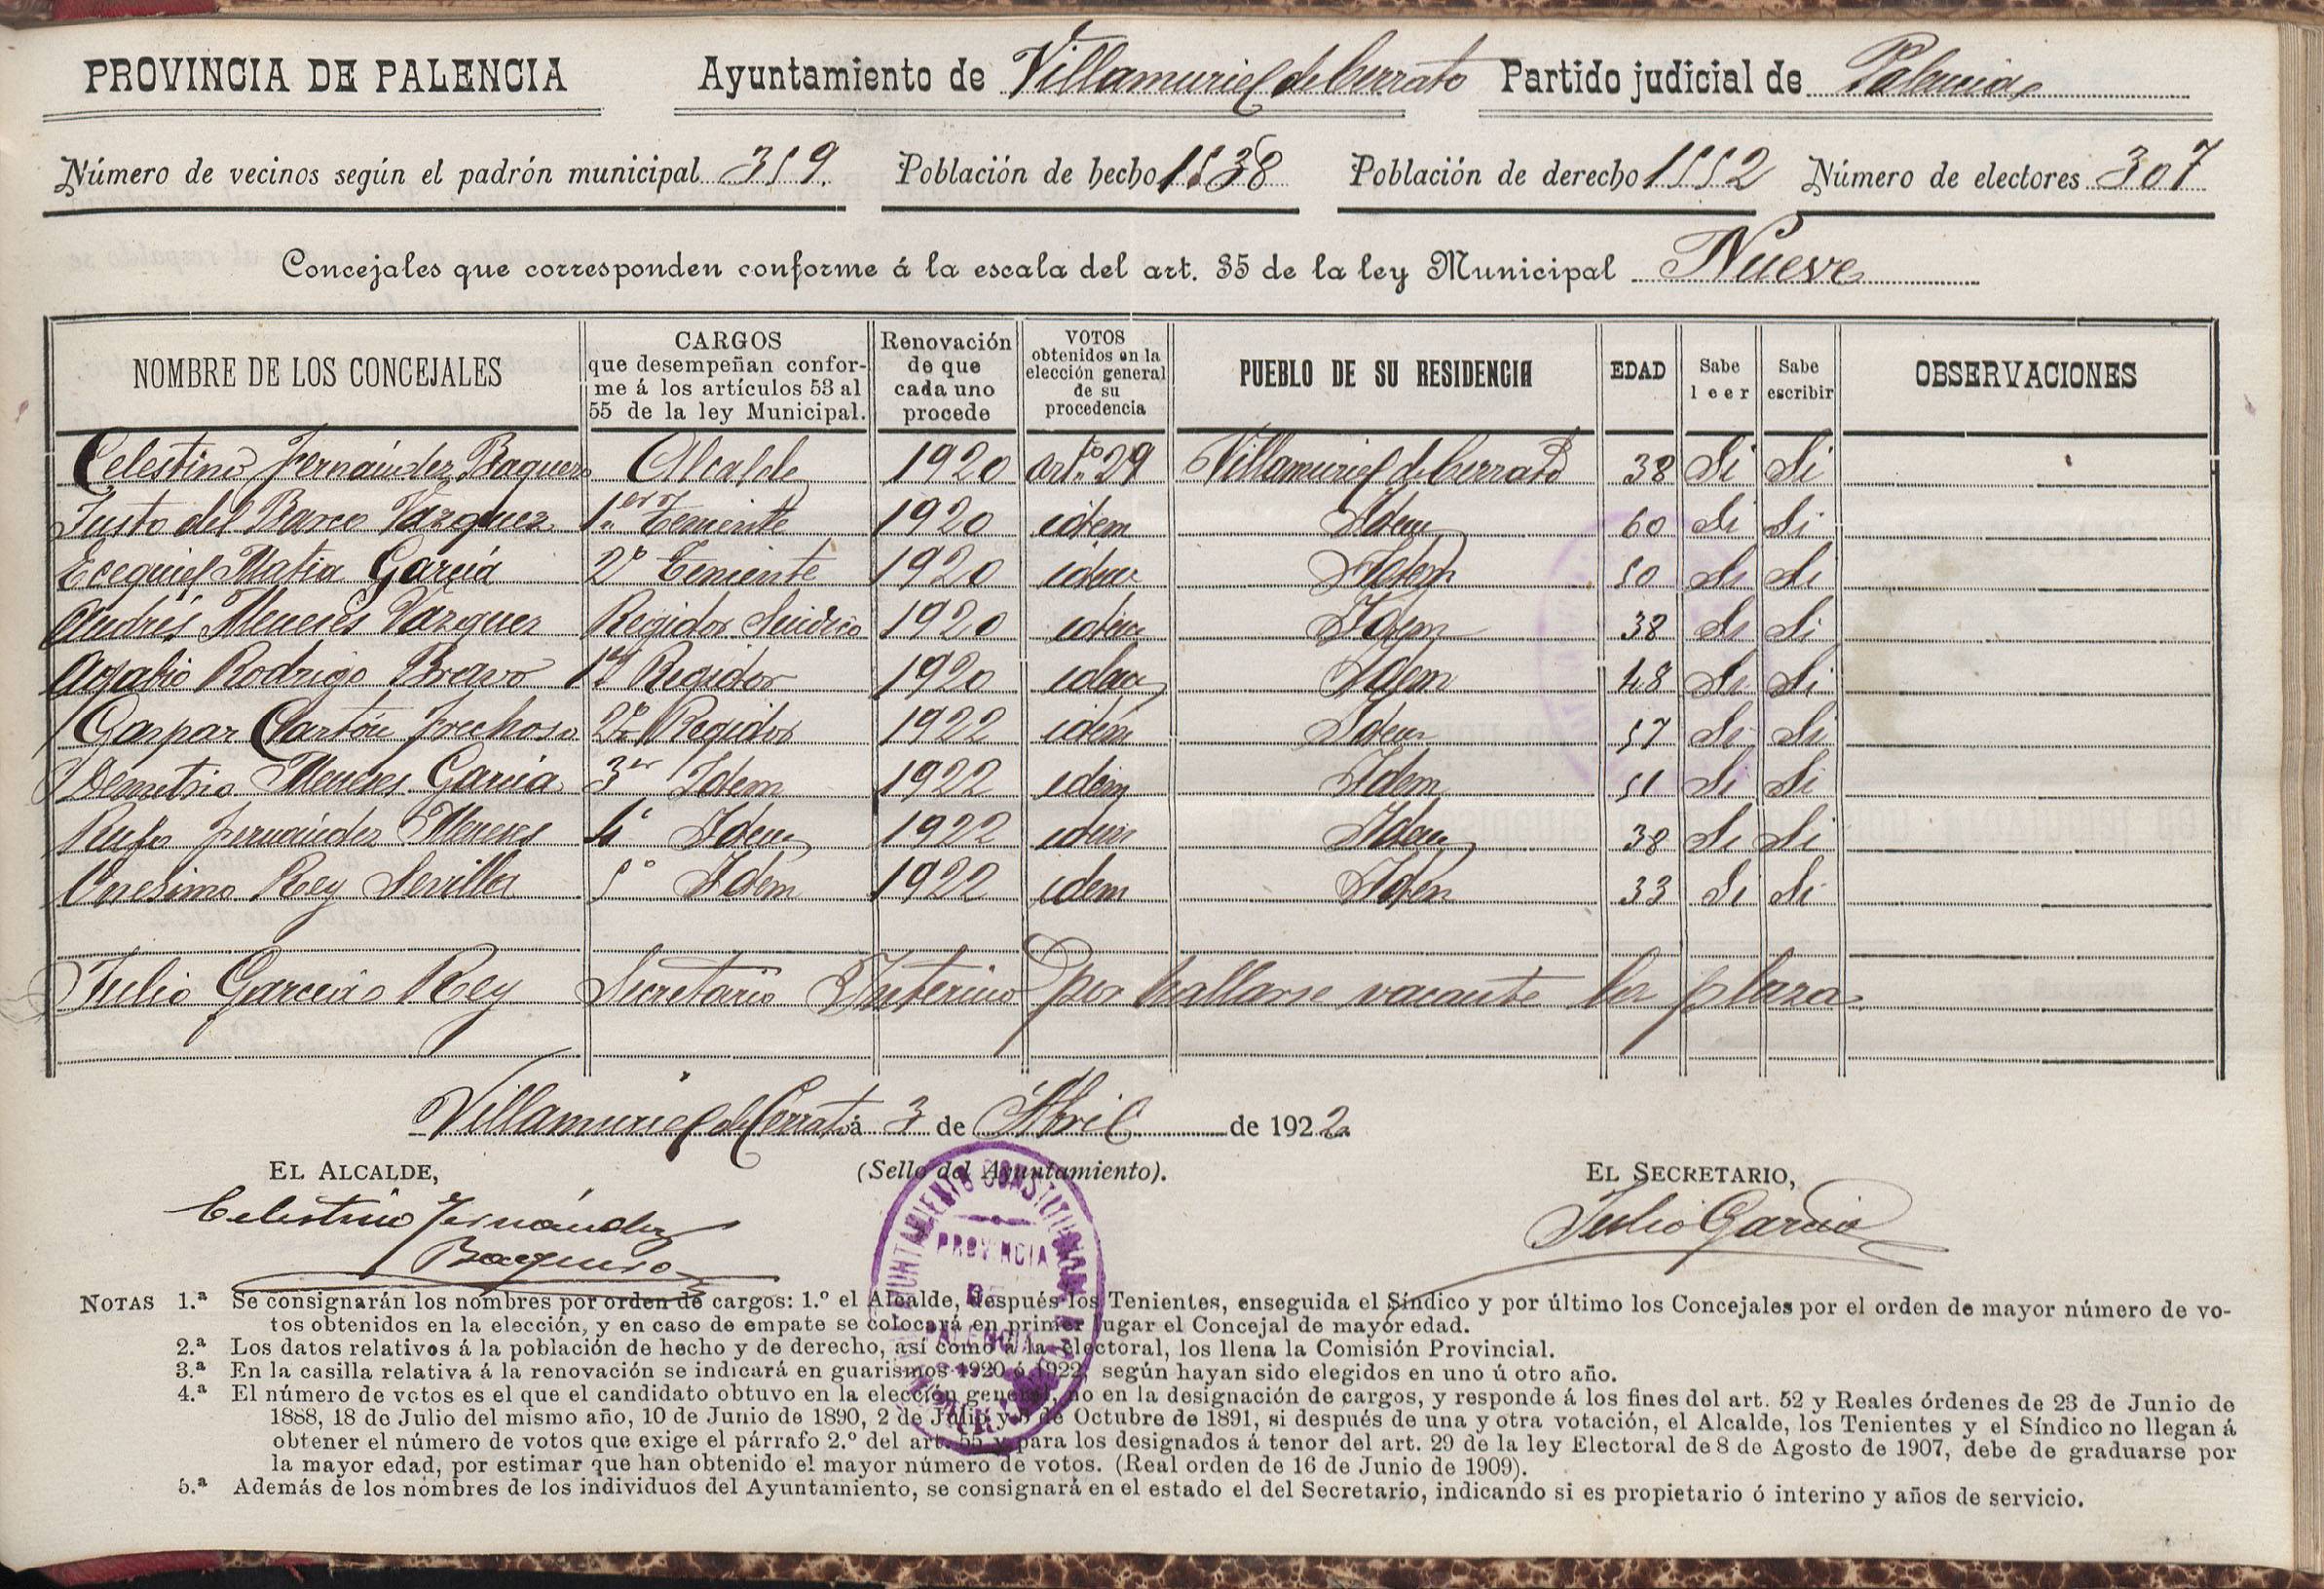 PROVINCIA DE PALENCIA Ayuntamiento de Villamuriel de Cerrato Partido judicial de Palencia
Número de vecinos según el padrón municipal 359. Población de hecho 1538 Población de derecho 1552 Número de electores 307
Concejales que corresponden conforme á la escala del art. 35 de la ley Municipal Nueve
NOMBRE DE LOS CONCEJALES
CARGOS
que desempeñan confor-
me á los artículos 53 al
55 de la ley Municipal.
Renovación
de que
cada uno
procede
VOTOS
obtenidos en la
elección general
de su
procedencia
PUEBLO DE SU RESIDENCIA
EDAD
Sabe
leer
Sabe
escribir
OBSERVACIONES
Celestino Fernández Baquero Alcalde 1920 art.º 29 Villamuriel de Cerrato 38 Si Si
Justo del Barco Vazquez 1.er Teniente 1920 idem Idem 60 Si Si
Ecequiel Matia García 2º Teniente 1920 idem Idem 50 Si Si
Andrés Meneses Vazquez Regidor Sindico 1920 idem Idem 38 Si Si
Agabio Rodrigo Bravo 1er Regidor 1920 idem Idem 48 Si Si
Gaspar Cantón Fruchoso 2º Regidor 1922 idem Idem 57 Si Si
Demetrio Meneses García 3er Idem 1922 idem Idem 51 Si Si
Rufo Fernández Meneses 4º Idem 1922 idem Idem 38 Si Si
Onesimo Rey Sevilla 5º Idem 1922 idem Idem 33 Si Si
Julio García Rey Secretario Interino por hallarse vacante la plaza
Villamuriel de Cerrato á 3 de Abril de 1922.
EL ALCALDE, (Sello del Ayuntamiento). EL SECRETARIO,
Celestino Fernández
Baquero
Julio García
AYUNTAMIENTO CONSTITUCIONAL
PROVINCIA
DE
PALENCIA
NOTAS 1.ª Se consignarán los nombres por orden de cargos: 1.º el Alcalde, después los Tenientes, enseguida el Síndico y por último los Concejales por el orden de mayor número de vo-
tos obtenidos en la elección, y en caso de empate se colocará en primer lugar el Concejal de mayor edad.
2.ª Los datos relativos á la población de hecho y de derecho, así como á la electoral, los llena la Comisión Provincial.
3.ª En la casilla relativa á la renovación se indicará en guarismos 1920 ó 1922, según hayan sido elegidos en uno ú otro año.
4.ª El número de votos es el que el candidato obtuvo en la elección general, no en la designación de cargos, y responde á los fines del art. 52 y Reales órdenes de 23 de Junio de
1888, 18 de Julio del mismo año, 10 de Junio de 1890, 2 de Julio y 5 de Octubre de 1891, si después de una y otra votación, el Alcalde, los Tenientes y el Síndico no llegan á
obtener el número de votos que exige el párrafo 2.º del art. 55 y para los designados á tenor del art. 29 de la ley Electoral de 8 de Agosto de 1907, debe de graduarse por
la mayor edad, por estimar que han obtenido el mayor número de votos. (Real orden de 16 de Junio de 1909).
5.ª Además de los nombres de los individuos del Ayuntamiento, se consignará en el estado el del Secretario, indicando si es propietario ó interino y años de servicio.